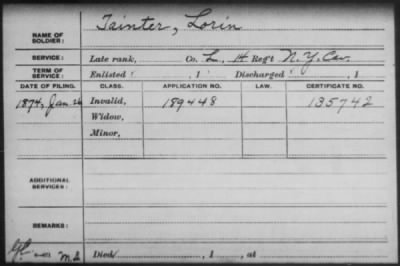 Tainter, Lorin
NAME OF SOLDIER:
SERVICE: Late rank, Co. L, 14 Reg't N.Y. Cav.
TERM OF SERVICE: Enlisted , 1 Discharged , 1
DATE OF FILING. CLASS. APPLICATION NO. LAW. CERTIFICATE NO.
1874, Jan. 26 Invalid, 189448 135742
Widow,
Minor,
ADDITIONAL SERVICES:
REMARKS:
Died , 1 , at